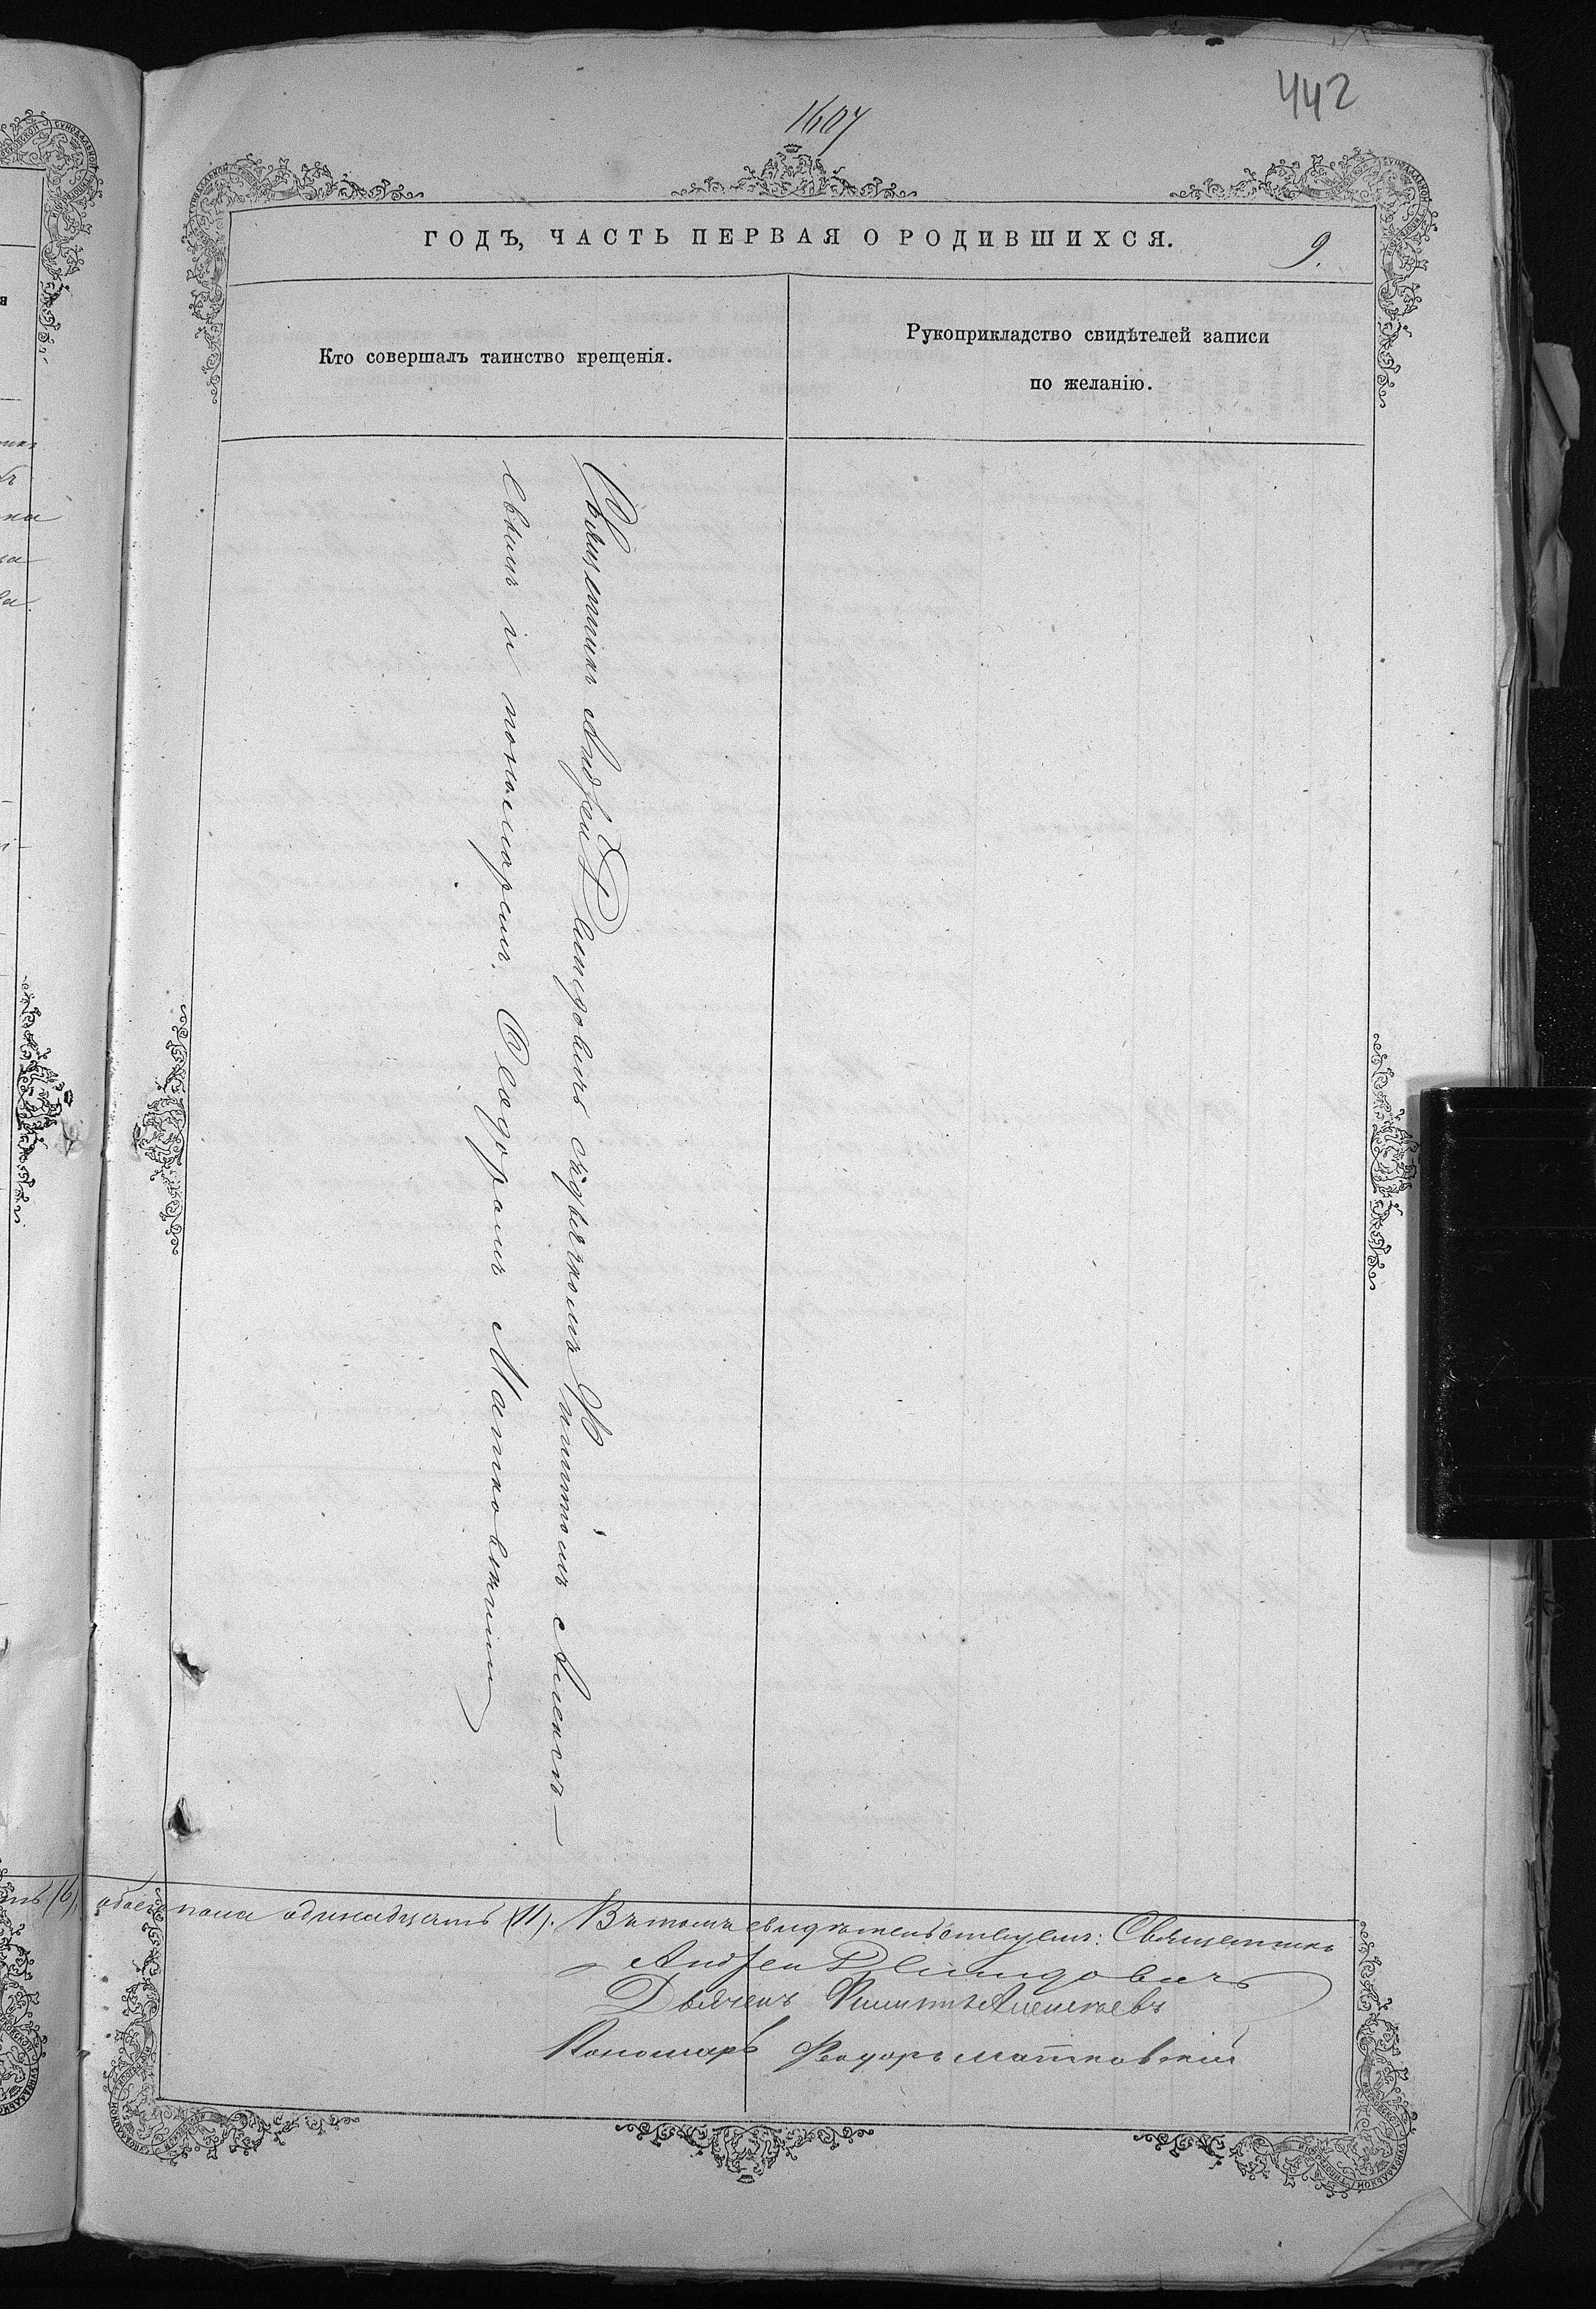 442
1607
ГОДЪ, ЧАСТЬ ПЕРВАЯ О РОДИВШИХСЯ.
9.
Кто совершалъ таинство крещенія.
Рукоприкладство свидѣтелей записи
по желанію.
Священникъ Андрей Демидовичъ съ дьячкомъ Филиппомъ Алексѣ-
евымъ и пономаремъ Ѳеодоромъ Матковскимъ
обоего пола одинадцать (11). Въ томъ свидѣтельствуемъ: Священникъ
Андрей Демидовичъ
Дьячекъ Филиппъ Алексѣевъ
Пономарь Феодоръ Матковскій